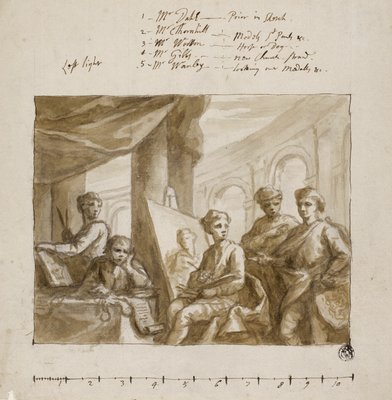 1 - Mr Dahl — Prior in sketch.
2 - Mr Thornhill — Models St Pauls &c.
3 - Mr Wotton — Horse or Dog
4 - Mr Gibbs — new Church strand.
5 - Mr Wanley — looking on Medals &c.
Left lighter
1 2 3 4 5 6 7 8 9 10